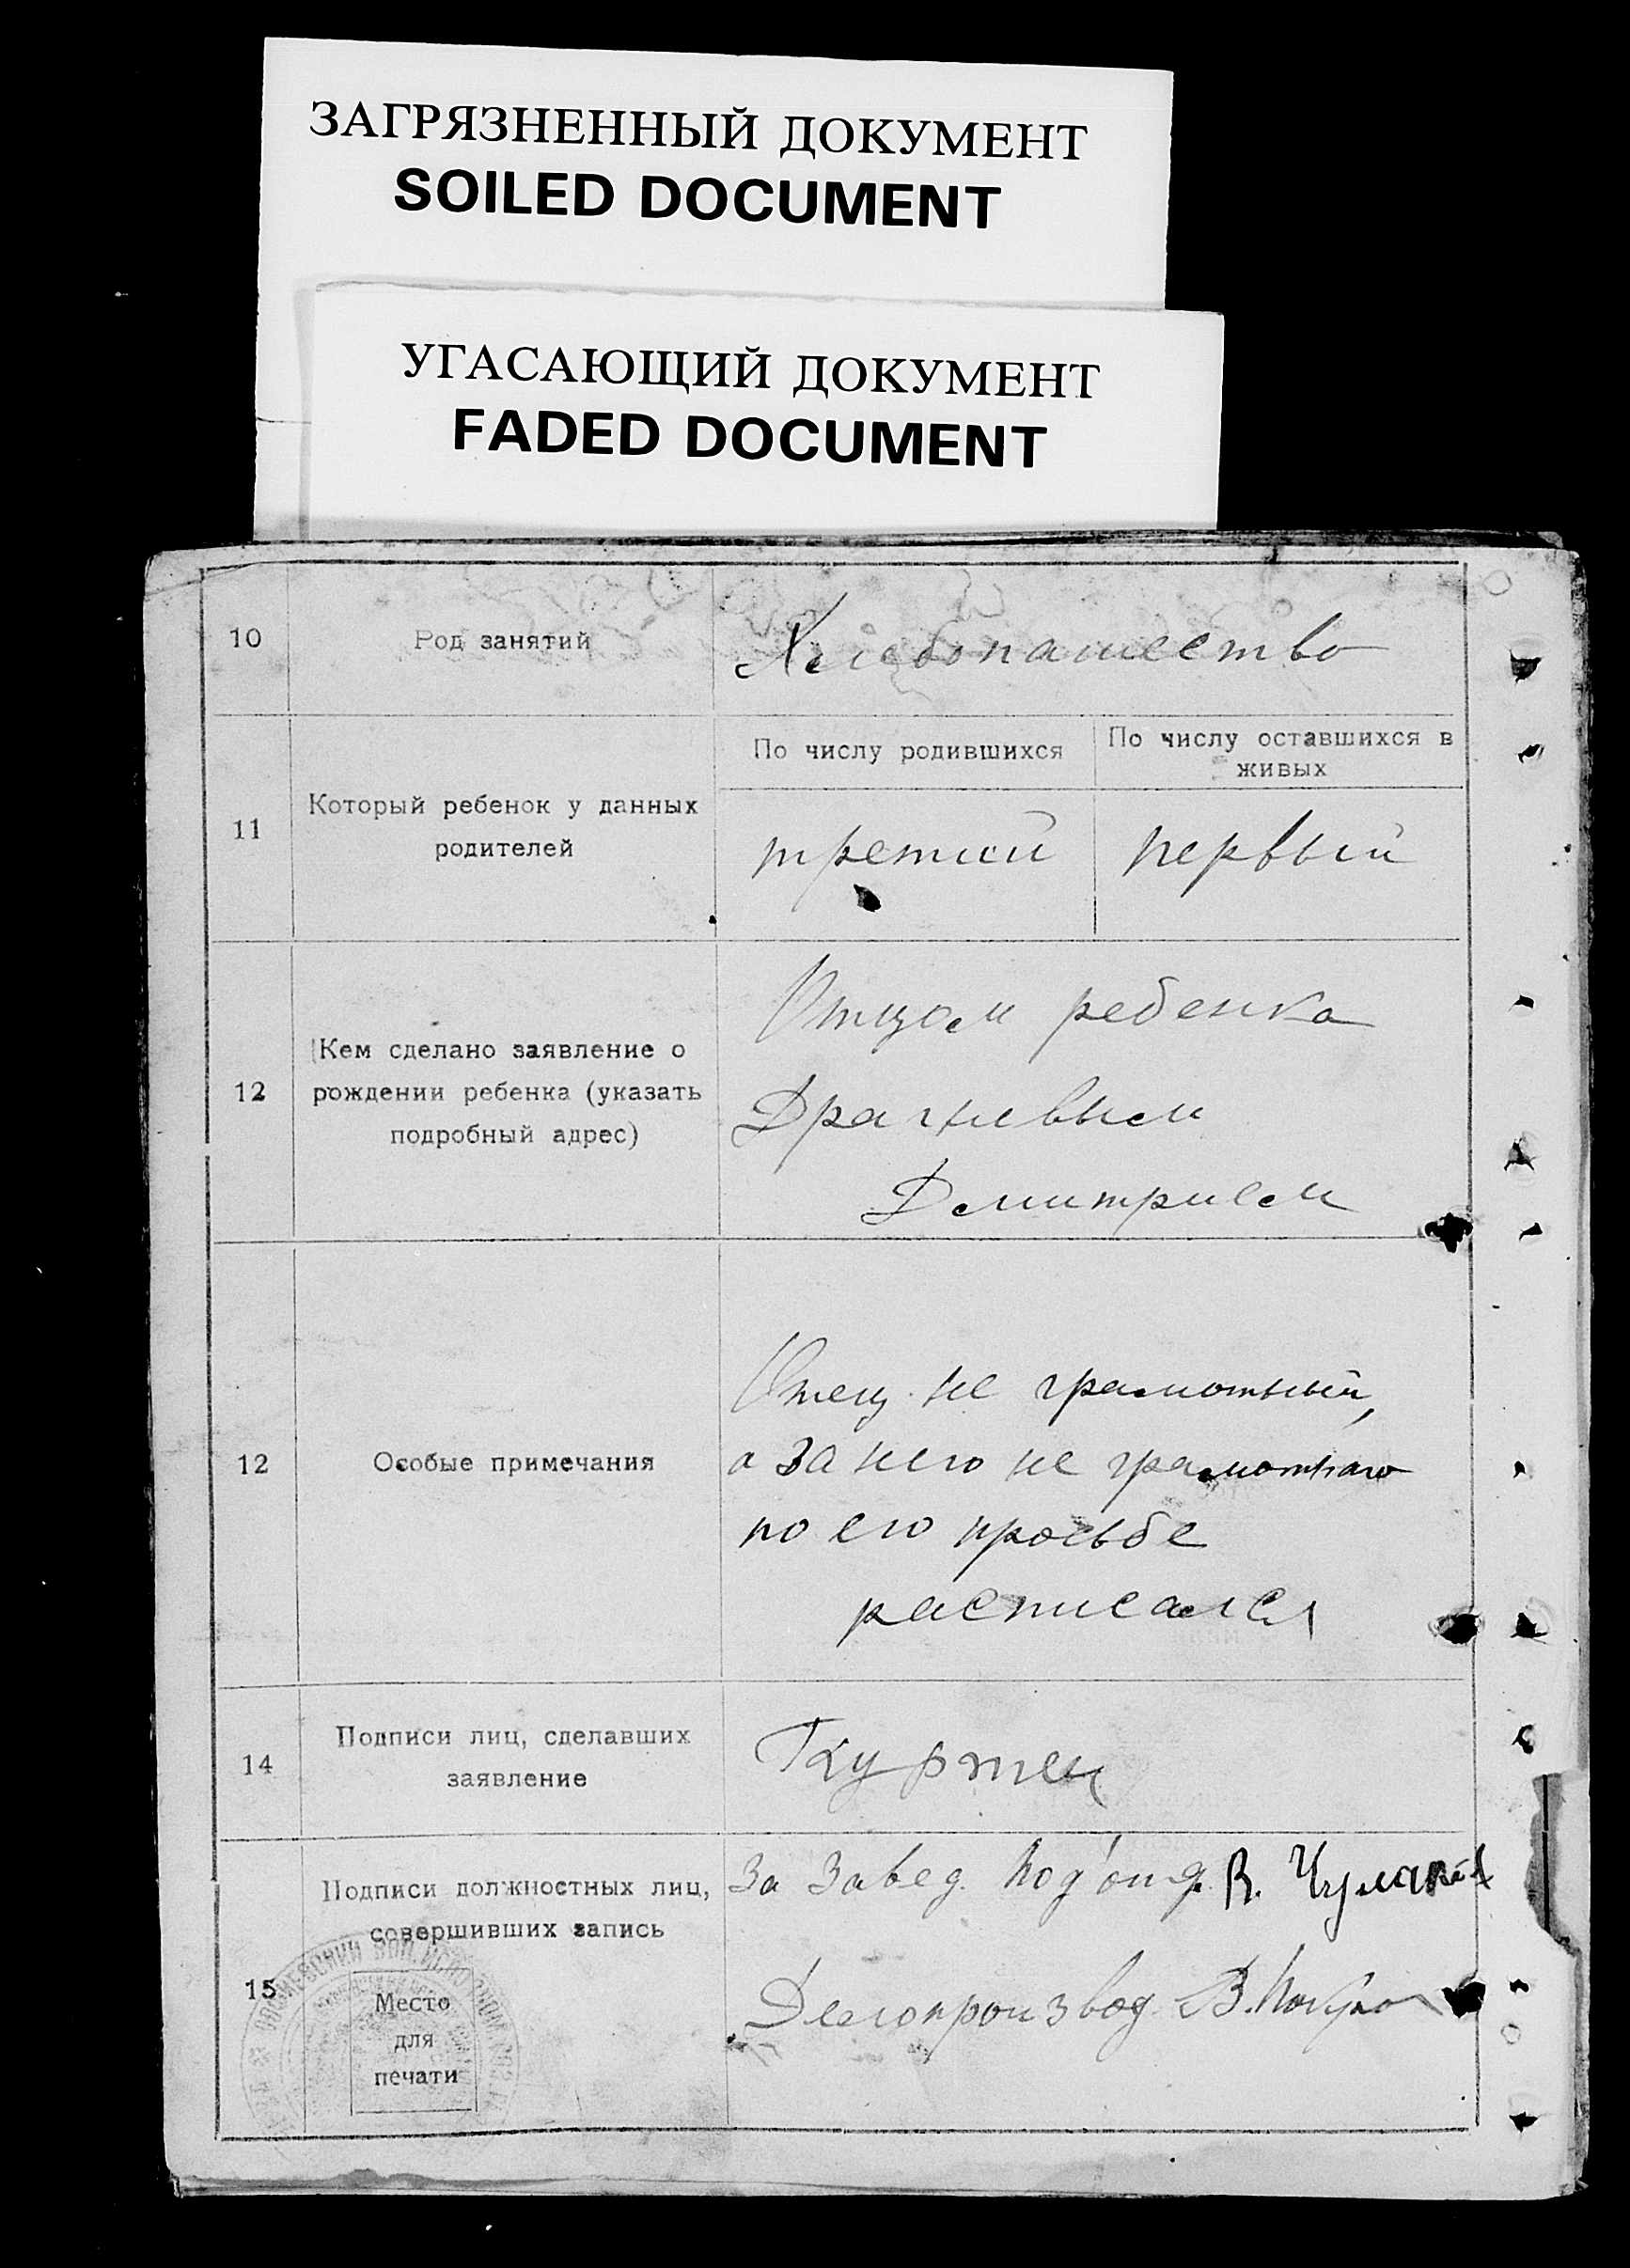 ЗАГРЯЗНЕННЫЙ ДОКУМЕНТ
SOILED DOCUMENT
УГАСАЮЩИЙ ДОКУМЕНТ
FADED DOCUMENT
10
Род занятий
Хлебопашество
11
Который ребенок у данных
родителей
По числу родившихся
По числу оставшихся в
живых
третий
первый
12
Кем сделано заявление о
рождении ребенка (указать
подробный адрес)
Отцом ребенка
Драгневым
Дмитрием
12
Особые примечания
Отец не грамотный,
а за него не грамотнаго
по его просьбе
расписался
14
Подписи лиц, сделавших
заявление
15
Подписи должностных лиц,
совершивших запись
Место
для
печати
За Завед. Под'отд.
Делопроизвод. В.